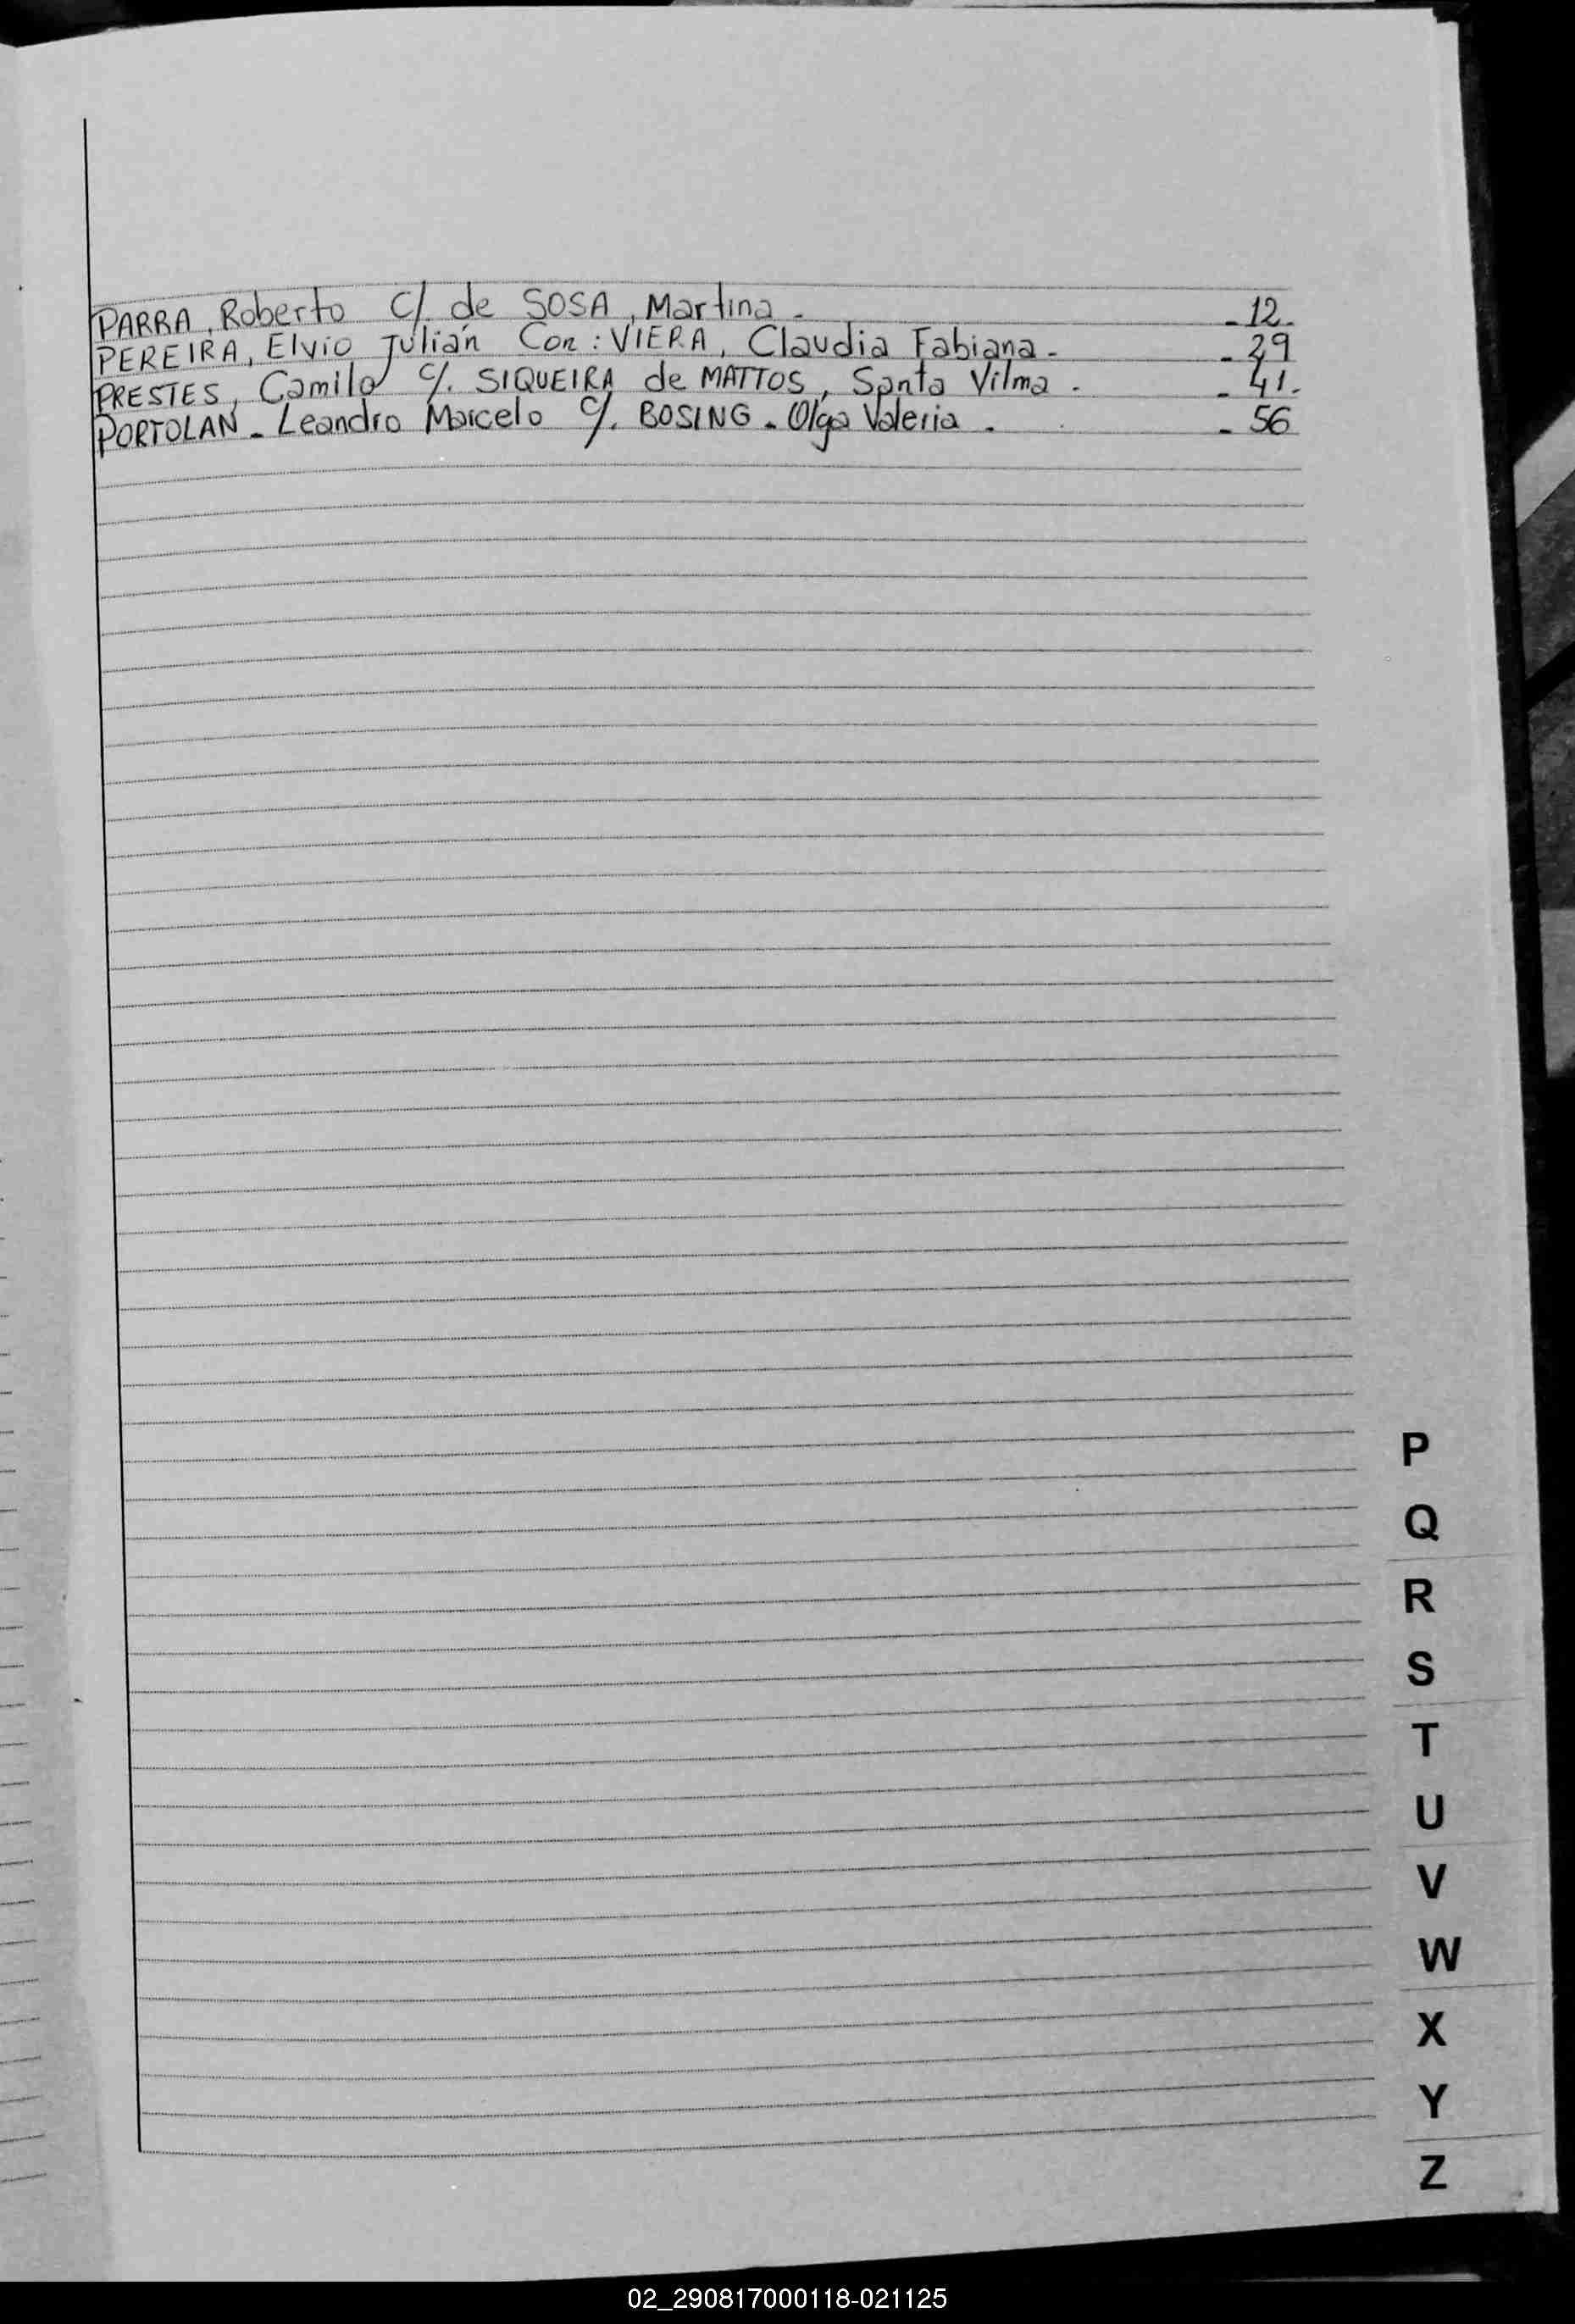 PARRA, Roberto C/. de SOSA, Martina. - 12.
PEREIRA, Elvio Julián Con: VIERA, Claudia Fabiana. - 29
PRESTES, Camilo C/. SIQUEIRA de MATTOS, Santa Vilma. - 41.
PORTOLAN - Leandro Marcelo C/. BOSING - Olga Valeria. - 56
P
Q
R
S
T
U
V
W
X
Y
Z
02_290817000118-021125